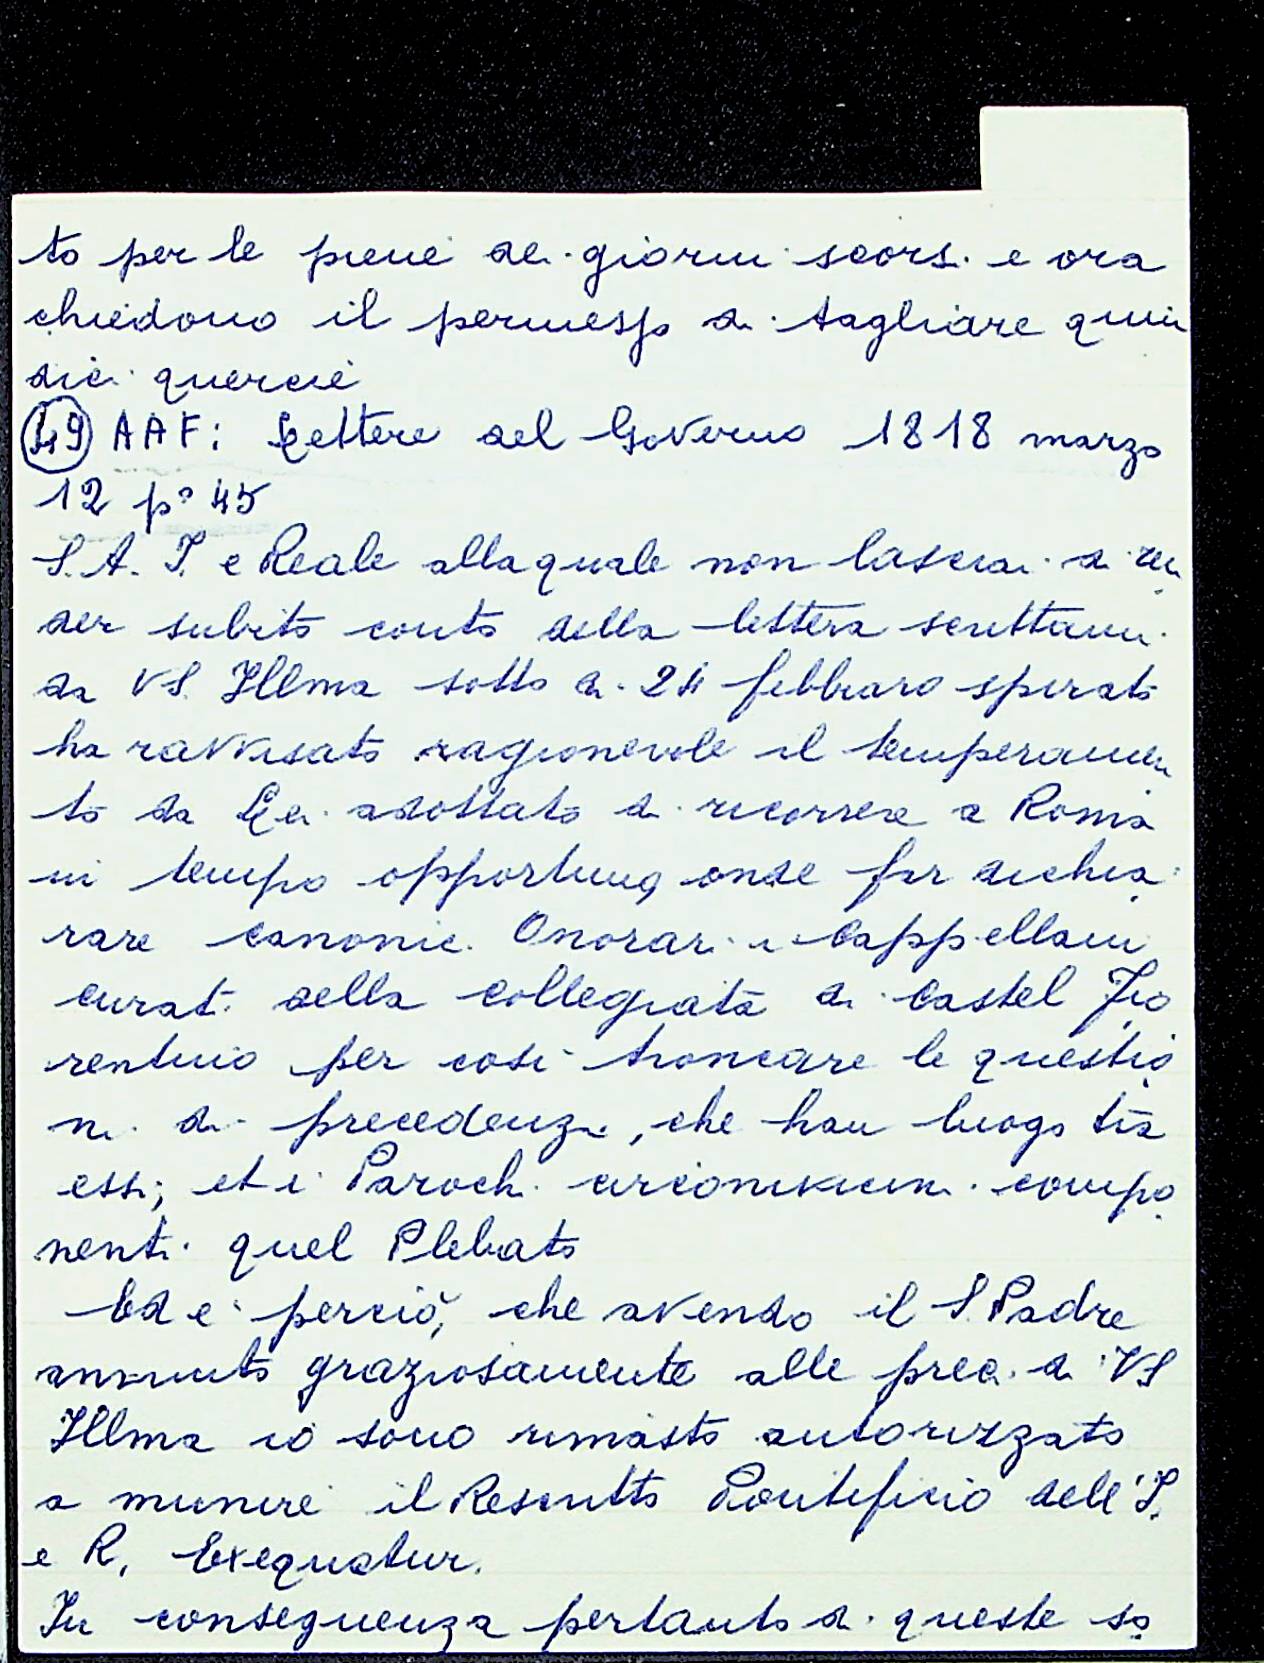 to per le piene dei giorni scorsi e ora
chiedono il permesso di tagliare quin
dici quercie
49 AAF: Lettere del Governo 1818 marzo
12 p° 45
S. A. I. e Reale alla quale non lasciai di ren
der subito conto della lettera scrittami
da VS. Illma sotto di 24 febbraro spirato
ha ravvisato ragionevole il temperamen
to da Lei adottato di ricorrere a Roma
in tempo opportuno, onde far dichia
rare canonici Onorari i Cappellani
curati della collegiata di Castel Fio
rentino per così troncare le questio
ni di precedenza, che han luogo tra
essi; et i Parochi circonvicini compo
nenti quel Plebato
Ed è perciò, che avendo il S. Padre
annuito graziosamente alle preci di VS
Illma io sono rimasto autorizzato
a munire il Rescritto Pontificio dell'I.
e R. Exequatur.
In conseguenza pertanto di queste so